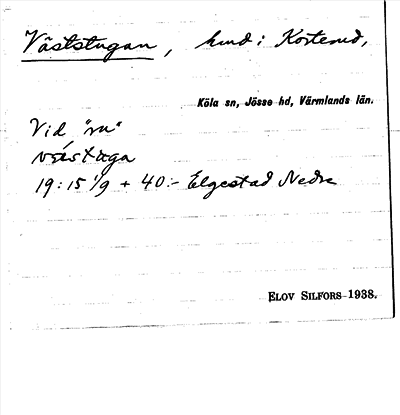 Väststugan, hmd i Kosterud,
Köla sn, Jösse hd, Värmlands län.
Vid "ru"
19:15 1/9 + 40:- Elgestad Nedre
ELOV SILFORS 1938.